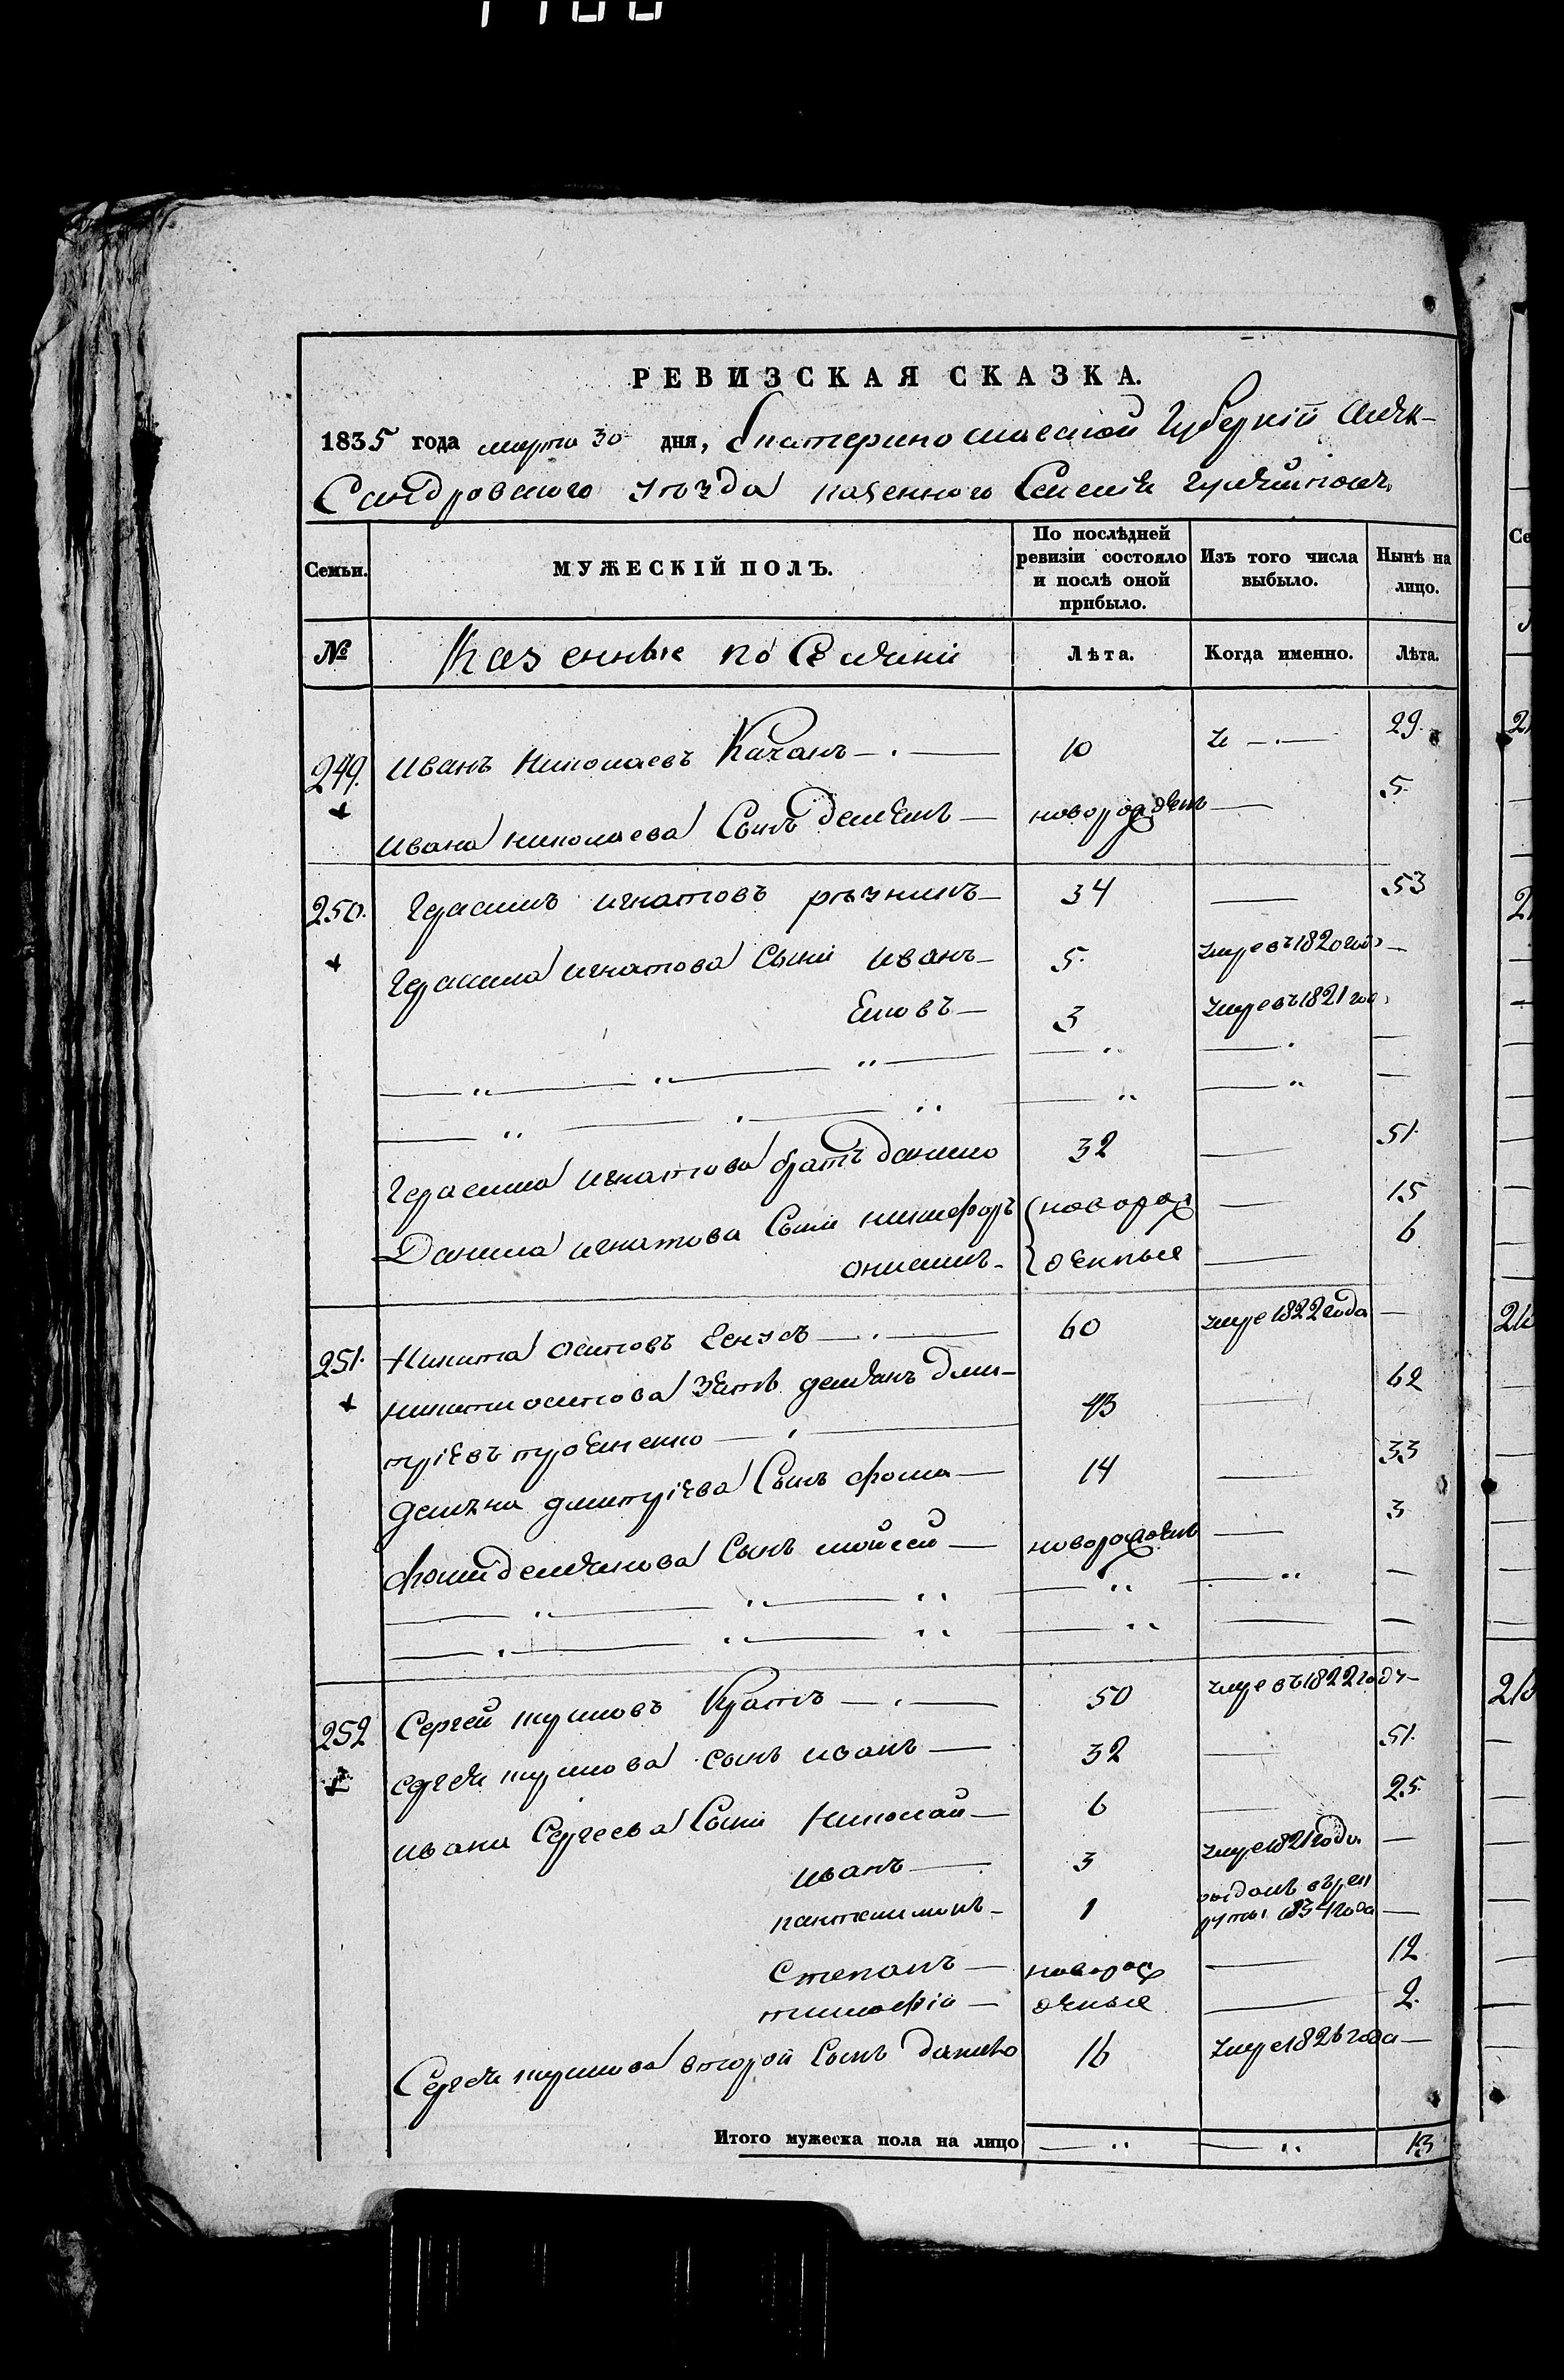 РЕВИЗСКАЯ СКАЗКА.
1835 года марта 30 дня, Екатеринославской Губерній Алек-
Сандровского уѣзда казенного Селенія Гуляйполя
Семьи. МУЖЕСКІЙ ПОЛЪ. По послѣдней ревизіи состояло и послѣ оной прибыло. Изъ того числа выбыло. Нынѣ на лицо.
№ Казенные поселяни Лѣта. Когда именно. Лѣта.
249. Иванъ Николаевъ Качанъ 10 29.
Ивана Николаева Сынъ Демянъ новорожденъ 5.
250. Герасимъ Игнатовъ рѣзникъ 34 53
Герасима Игнатова Сыни Иванъ 5. умре въ 1820 год
3 умре въ 1821 го
Герасима Игнатова братъ данило 32 51.
Данила Игнатова Сыни никифоръ новорож 15
онисимъ денные 6
251. Никита Осиповъ 60 умре 1822 года
никиты осипова Зять демянъ дми-
тріевъ 43 62
демяна дмитріева Сынъ фома 14 33
фоми демянова Сынъ мойсей новорожденъ 3
252 Сергей 50 умре въ 1822 году
сергея сынъ иванъ 32 51.
ивана Сергеева Сыни Николай 6 25.
иванъ 3 умре 1821 года
пантелимонъ 1 выданъ въ рек
руты 1834 года
Степанъ новорож 12
тимофій денные 2.
Сергея второй Сынъ данило 16 умре 1826 года
Итого мужеска пола на лицо 13